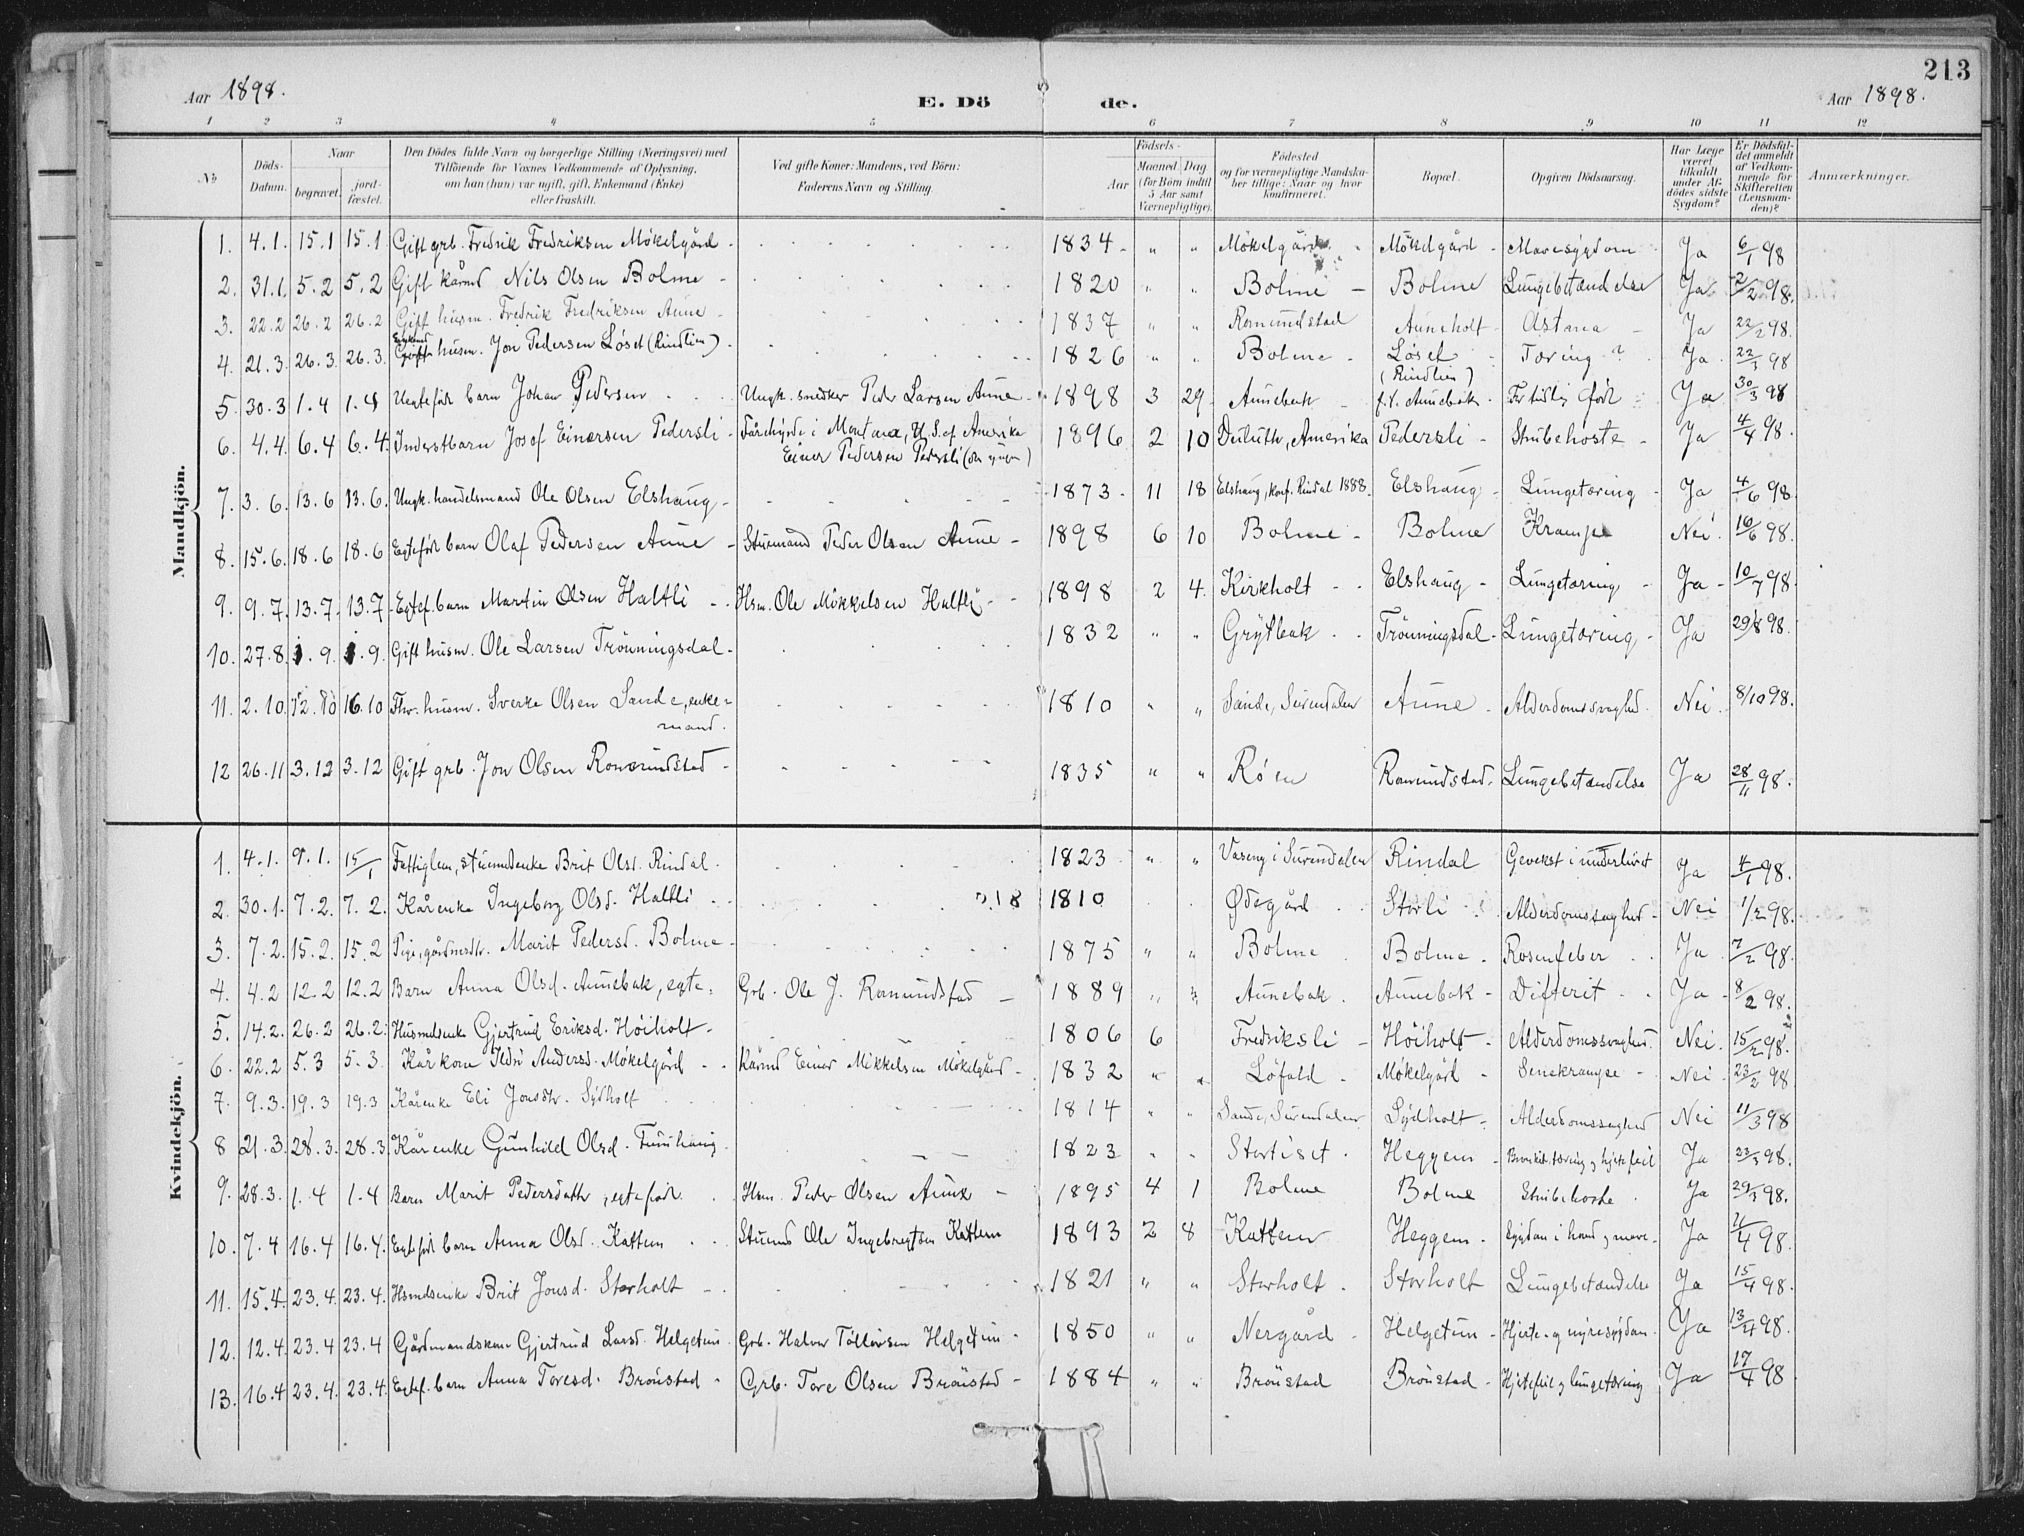 213
Aar 1898.
E. Dö de.
Aar 1898.
1 2 3 4 5 6 7 8 9 10 11 12
No. Döds-Datum. Naar begravet. jord-fæstet. Den Dödes fulde Navn og borgerlige Stilling (Næringsvei) med Tilföiende for Voxnes Vedkommende af Oplysning, om han (hun) var ugift, gift, Enkemand (Enke) eller fraskilt. Ved gifte Koner: Mandens, ved Börn: Faderens Navn og Stilling. Födsels- Aar Maaned Dag (for Börn indtil 5 Aar samt Værnepligtige). Födested og for værnepligtige Mandskaber tillige: Naar og hvor konfirmeret. Bopæl. Opgiven Dödsaarsag. Har Læge været tilkaldt under Afdödes sidste Sygdom? Er Dödsfaldet anmeldt af Vedkommende for Skifteretten (Lensmanden)? Anmærkninger.
Mandkjön.
1. 4.1. 15.1 15.1 Gift grb. Fredrik Fredriksen Mökelgård - 1834 - " " Mökelgård - Mökelgård - Mavesygdom Ja 6/1 98
2. 31.1. 5.2 5.2 Gift kårmd Nils Olsen Bolme - 1820 " " Bolme - Bolme Lungebetændelse Ja 2/2 98.
3. 22.2 26.2 26.2 Gift husm. Fredrik Fredriksen Aune - 1837 " " Romundstad Auneholt - Astma - Ja 22/2 98.
4. 21.3. 26.3. 26.3. Enkemd husm. Jon Pedersen Løset (Rindlien) - 1826 " " Bolme - Løset (Rindlien) Tæring ? Ja 22/3 98
5. 30.3 1.4 1.4 Uegtefødt barn Johan Pedersen Ungk. snedker Peder Larsen Aune - 1898 3 29. Aunebak - f.t. Aunebak - For tidlig født Ja 30/3 98
6. 4.4. 6.4 6.4. Inderstbarn Josef Einersen Pedersli - Fårehyrde i Montana, U.S. of Amerika Einer Pedersen Pedersli 1896 2 10 Duluth, Amerika Pedersli - Strubehoste - Ja 4/4 98.
7. 3.6. 13.6 13.6. Ungk. handelsmand Ole Olsen Elshaug - 1873 - 11 18 Elshaug, konf. Rindal 1888. Elshaug - Lungetæring Ja 4/6 98.
8. 15.6. 18.6 18.6 Egtefødt barn Olaf Pedersen Aune - Stuemand Peder Olsen Aune - 1898 6 10 Bolme - Bolme Krampe Nei. 16/6 98.
9. 9.7. 13.7. 13.7. Egtef. barn Martin Olsen Haltli - Hsm. Ole Mikkelsen Haltli - 1898 2 4. Kirkholt - Elshaug - Lungetæring - Ja - 10/7 98.
10. 27.8. 1.9. 1.9. Gift husm. Ole Larsen Trönningsdal - 1832 " " Grytbak Trönningsdal - Lungetæring - Ja 29/8 98.
11. 2.10. 12.10 16.10 Fhv. husm. Sverke Olsen Sande, enkemand. 1810 " " Sande, Surendalen Aune - Alderdomssvaghed. Nei. 8/10 98.
12 26.11 3.12 3.12 Gift grb. Jon Olsen Romundstad - 1835 " " Røen Romundstad. Lungebetændelse Ja 28/11 98.
Kvindekjön.
1. 4.1. 9.1. 15/1 Fattiglem, stuemdsenke Brit Olsd. Rindal. 1823 " " Vaseng i Surendalen Rindal Gevekst i underlivet Ja 4/1 98.
2. 30.1. 7.2. 7.2. Kårenke Ingeborg Olsd. Haltli 1810 Ødegård Storli Alderdomssvaghed - Nei 1/2 98.
3. 7.2. 15.2. 15.2 Pige, gårdmdtr. Marit Pedersd. Bolme - 1875 " " Bolme Bolme - Rosenfeber Ja 7/2 98.
4. 4.2 12.2 12.2 Barn Anna Olsd. Aunebak, egte- Grb. Ole J. Romundstad - 1889 " " Aunebak. Aunebak - Difterit - Ja - 8/2 98.
5. 14.2. 26.2 26.2. Husmdsenke Gjertrud Eriksd. Höiholt - 1806 6 Fredriksli - Höiholt - Alderdomssvaghed. Nei. 15/2 98.
6. 22.2 5.3 5.3. Kårkone Ildri Andersd. Mökelgård - Kårmd Einer Mikkelsen Mökelgård - 1832 " " Löfald - Mökelgård - Senekrampe - Nei. 23/2 98
7. 9.3. 19.3 19.3 Kårenke Eli Jonsdtr. Sydholt 1814 " " Sande, Surendalen Sydholt - Alderdomssvaghed Nei 11/3 98
8 21.3. 28.3. 28.3. Kårenke Gunhild Olsd. Funhaug 1823 " " Stortiset. Heggem - Bronkit. tæring og hjertefeil Ja 23/3 98.
9. 28.3. 1.4 1.4 Barn Marit Pedersdatter, egtefødt. Hsm. Peder Olsen Aune - 1895 4 1 Bolme Bolme Strubehoste. Ja 29/3 98.
10. 7.4 16.4 16.4. Egtefødt barn Anna Olsd. Kattem Stuemd Ole Ingebrigtsen Kattem 1893 2 8 Kattem Heggem. Sygdom i hoved og mave - Ja 11/4 98.
11. 15.4. 23.4. 23.4. Hsmdsenke Brit Jonsd. Storholt - 1821 " " Storholt. Storholt Lungebetændelse Ja 15/4 98.
12. 12.4. 23.4 23.4 Gårdmandskone Gjertrud Larsd. Helgetun Grb. Halvor Tollevsen Helgetun - 1850 " " Nergård - Helgetun - Hjerte- og nyresygdom. Ja 13/4 98.
13. 16.4 23.4. 23.4. Egtef. barn Anna Toresd. Brönstad - Grb. Tore Olsen Brönstad - 1884 " " Brönstad Brönstad - Hjertefeil og lungetæring Ja 17/4 98.